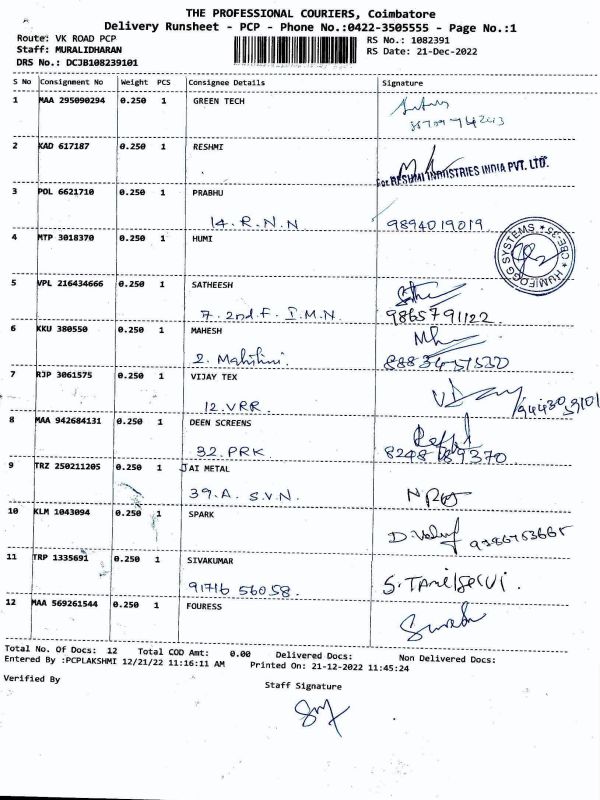 THE PROFESSIONAL COURIERS, Coimbatore
Delivery Runsheet - PCP - Phone No.:0422-3505555 - Page No.:1
Route: VK ROAD PCP RS No.: 1082391
Staff: MURALIDHARAN RS Date: 21-Dec-2022
DRS No.: DCJB108239101
S No Consignment No Weight PCS Consignee Details Signature
1 MAA 295090294 0.250 1 GREEN TECH
2 KAD 617187 0.250 1 RESHMI
For RESHMI INDUSTRIES INDIA PVT. LTD.
3 POL 6621710 0.250 1 PRABHU
14. R.N.N 9894019019
4 MTP 3018370 0.250 1 HUMI
HUMIFOGG SYSTEMS * CBE-35 *
5 VPL 216434666 0.250 1 SATHEESH
7. 2nd F. I.M.N. 9865791122
6 KKU 380550 0.250 1 MAHESH
2. Mahilini.
7 RJP 3061575 0.250 1 VIJAY TEX
12. VRR
8 MAA 942684131 0.250 1 DEEN SCREENS
32. PRK
9 TRZ 250211205 0.250 1 JAI METAL
39. A. S.V.N.
10 KLM 1043094 0.250 1 SPARK
11 TRP 1335691 0.250 1 SIVAKUMAR
91716 56058. S. TAMILSELVI.
12 MAA 569261544 0.250 1 FOURESS
Total No. Of Docs: 12 Total COD Amt: 0.00 Delivered Docs: Non Delivered Docs:
Entered By :PCPLAKSHMI 12/21/22 11:16:11 AM Printed On: 21-12-2022 11:45:24
Verified By
Staff Signature